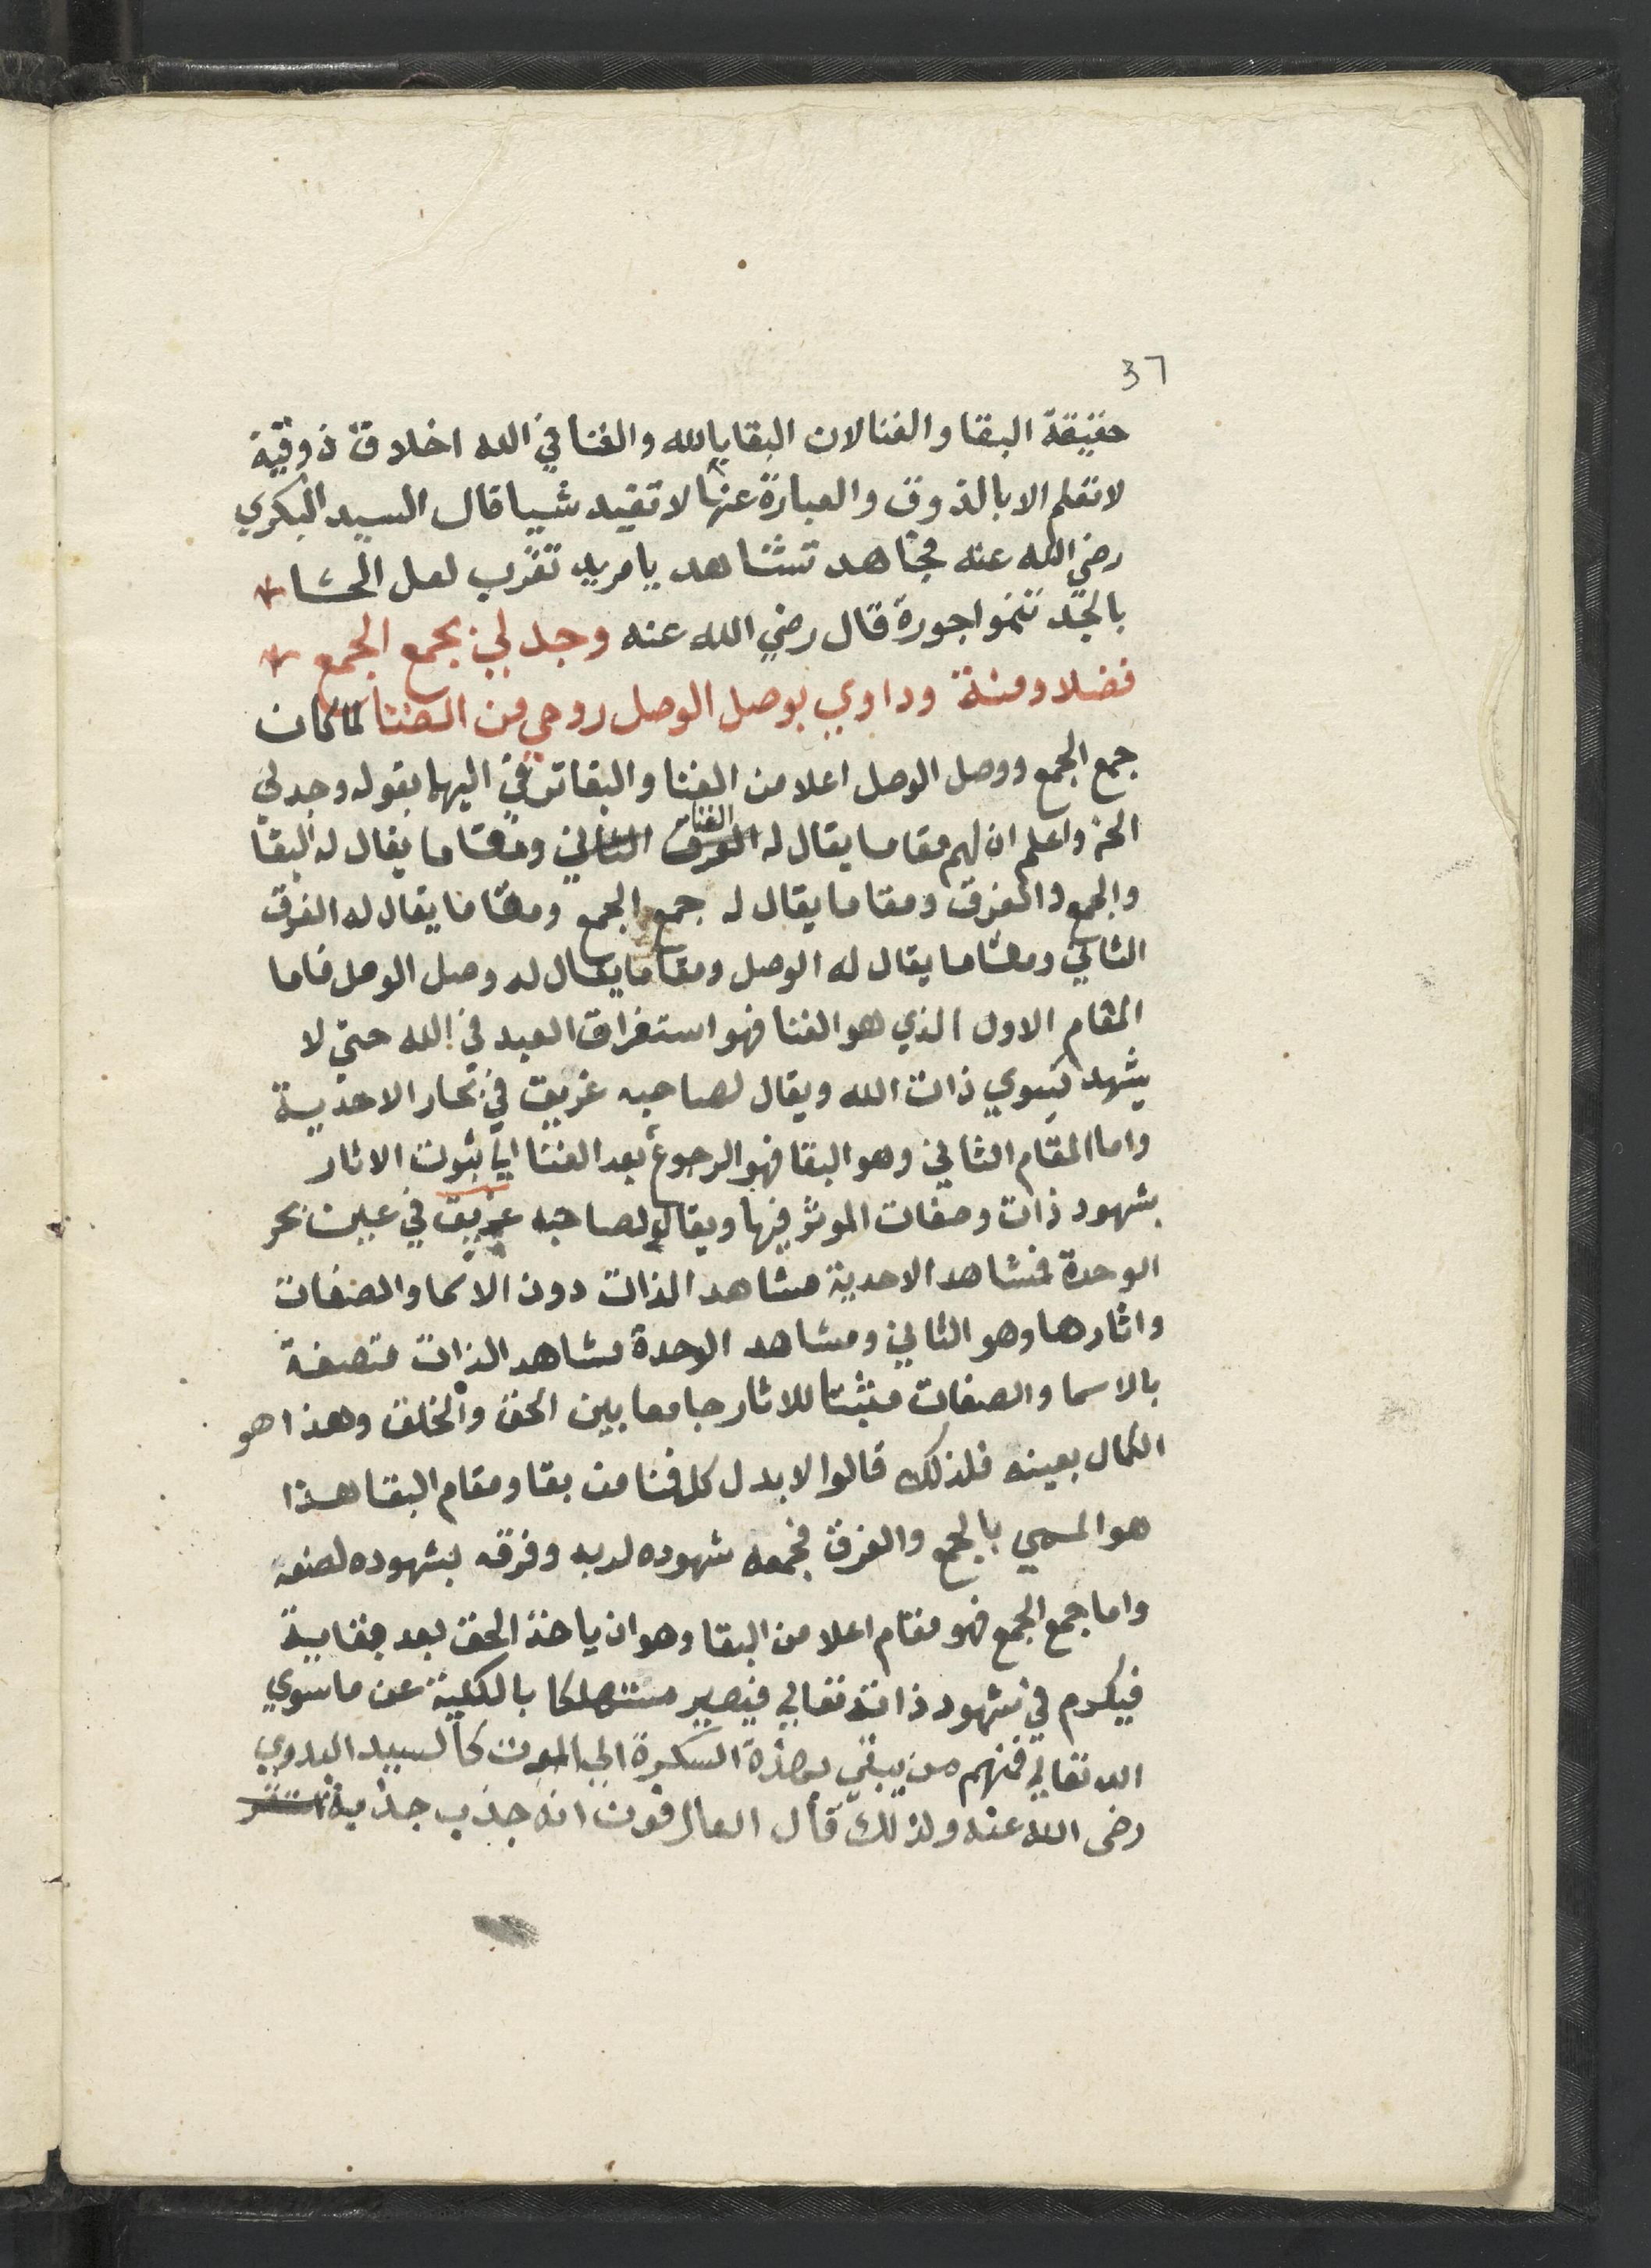 37
حقيقة البقا والفنا لان البقا بالله والفنا في الله اخلاق ذوقية
لا تعلم الا بالذوق والعبارة عنها لا تفيد شييا قال السيد البكري
رضي الله عنه فجاهد تشاهد يا مريد تقرب لعل الحشا *
بالجد تنموا جورة قال رضي الله عنه وجد لي بجمع الجمع *
فضلا ومنة وداوي بوصل الوصل روحي من الضنا لما كان
جمع الجمع ووصل الوصل اعلا من الفنا والبقا ترقي اليها بقوله وجد لي
الخ واعلم ان لهم مقاما يقال له الفنا ومقاما يقال له البقا
والجمع والفرق ومقاما يقال له جمع الجمع ومقاما يقال له الفرق
الثاني ومقاما يقال له الوصل ومقاما يقال له وصل الوصل فاما
المقام الاول الذي هو الفنا فهو استغراق العبد في الله حتي لا
يشهد سوي ذات الله ويقال لصاحبه غريق في بحار الاحدية
واما المقام الثاني وهو البقا فهو الرجوع بعد الفنا الي ثبوت الاثار
بشهود ذات وصفات الموثر فيها ويقال لصاحبه غريق في عين بحر
الوحدة فمشاهد الاحدية مشاهد الذات دون الاسما والصفات
واثارها وهو الثاني ومشاهد الوحدة مشاهد الذات متصفة
بالاسما والصفات مثبتا للاثار جامعا بين الحق والخلق وهذا هو
الكمال بعينه فلذلك قالوا لابد ل كل فنا من بقا ومقام البقا هذا
هو المسمي بالجمع والفرق فجمعه شهوده لربه وفرقه بشهوده لصنعه
واما جمع الجمع فهو مقام اعلا من البقا وهو ان ياخذ الحق بعد بقايية
في شهود ذاته تعالي فيصير مستهلكا بالكلية عن ما سوي
الله تعالي فمنهم من يبقي بهذة السكرة الي الموت كالسيد البدوي
رضي الله عنه ولذلك قال العارفون انه جذب جذبة